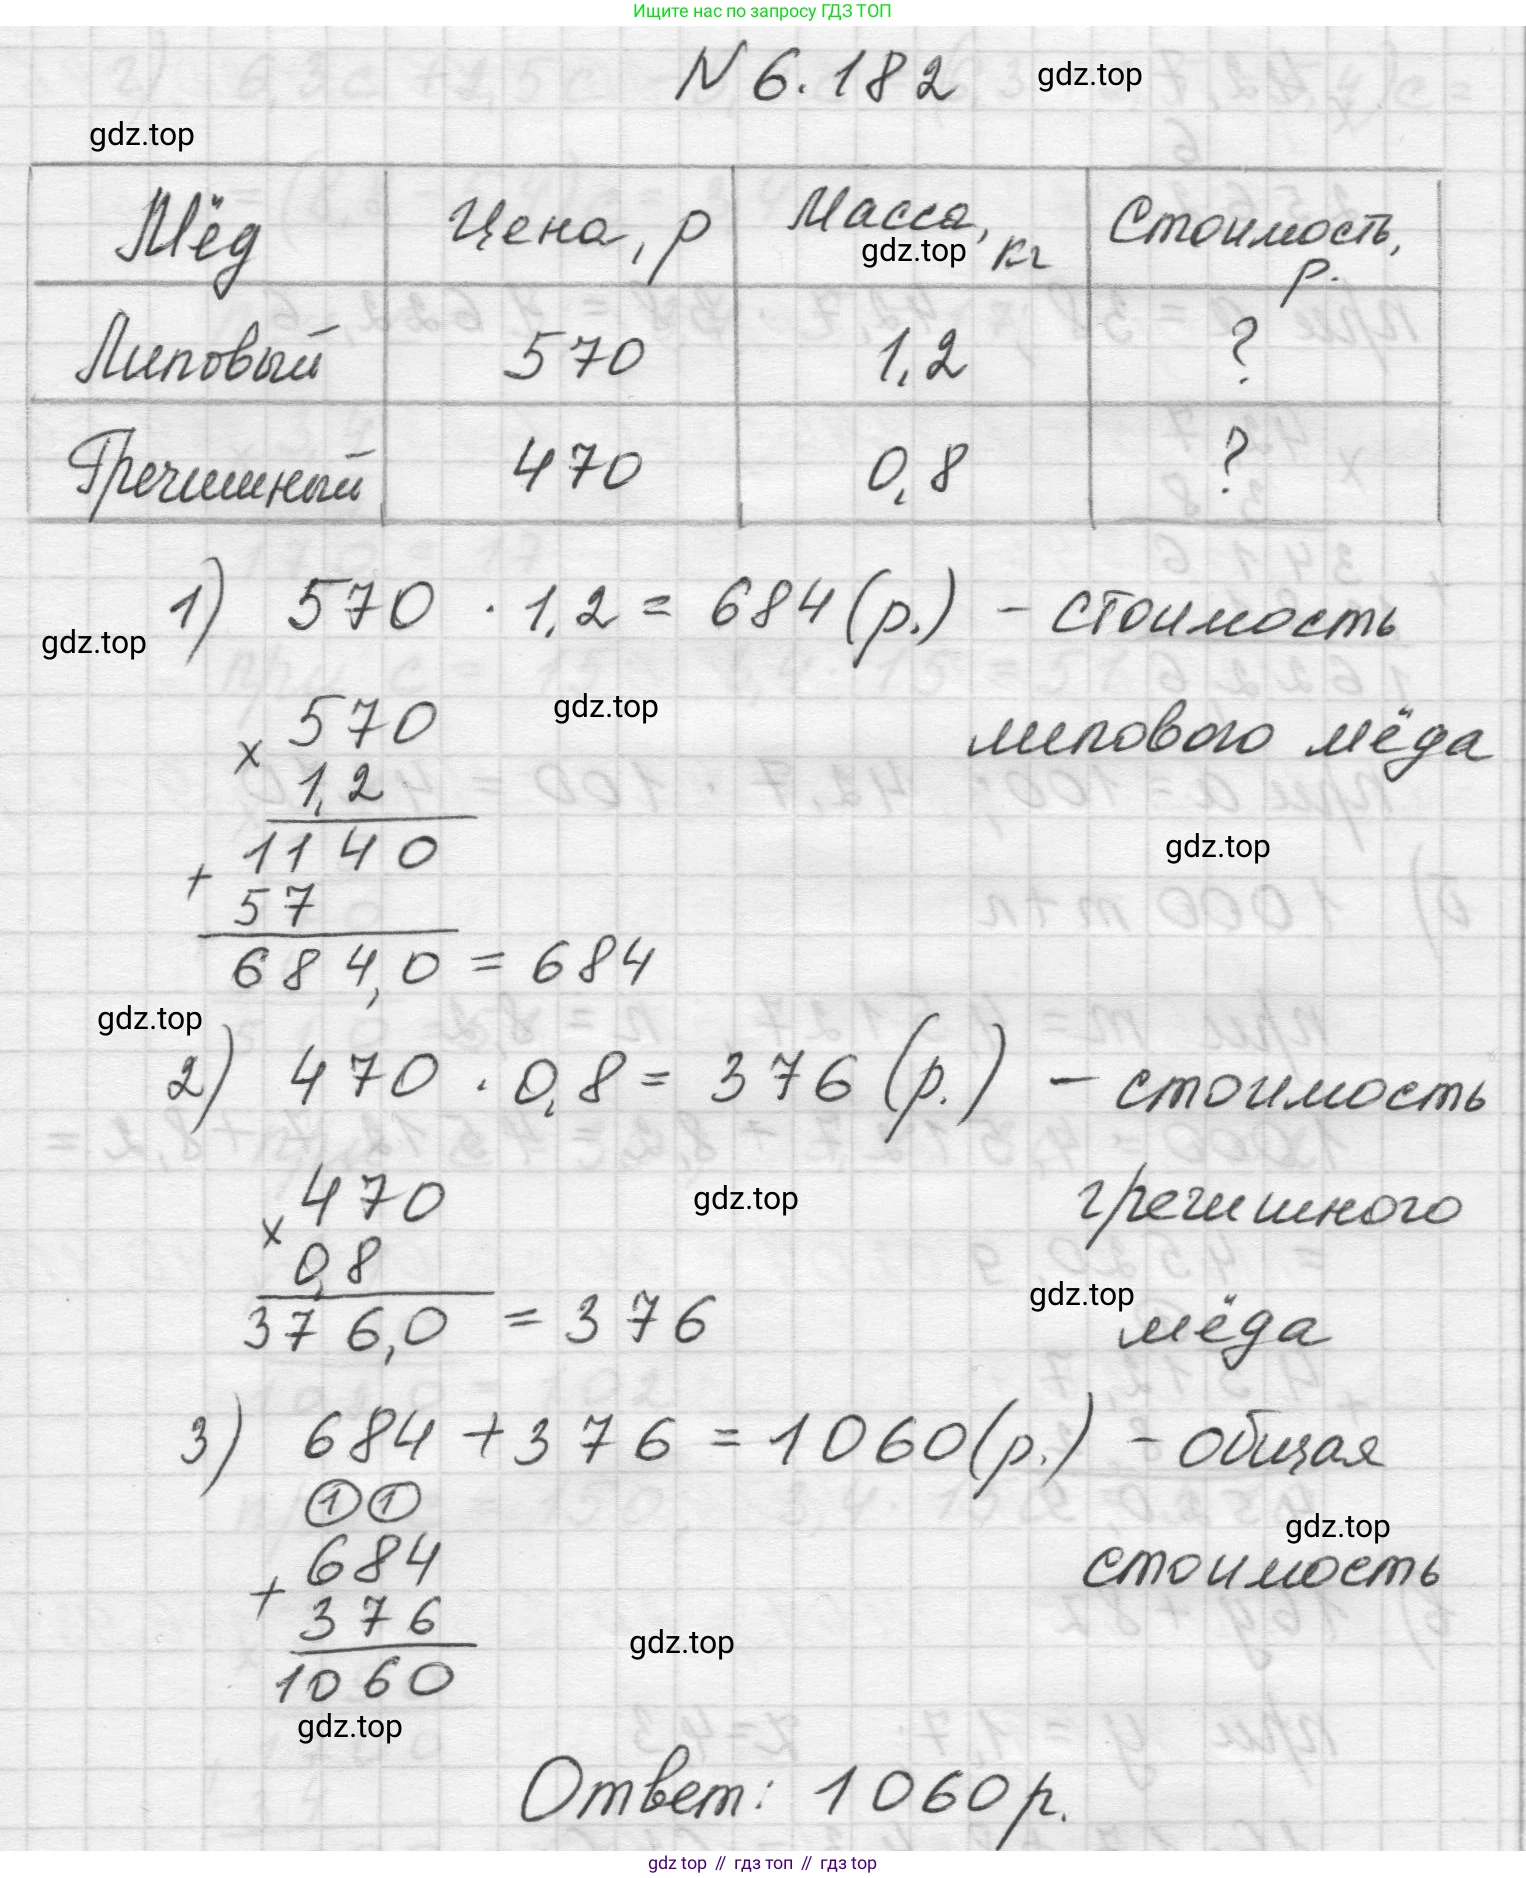 Ищите нас по запросу ГДЗ ТОП
N 6.182
gdz.top
gdz.top
Мёд Цена, р Масса, кг Стоимость, р.
gdz.top
Липовый 570 1,2 ?
Гречишный 470 0,8 ?
1) 570 · 1,2 = 684 (р.) – стоимость
gdz.top
липового мёда
gdz.top
570
×
1,2
1140
+
57
684,0 = 684
gdz.top
gdz.top
2) 470 · 0,8 = 376 (р.) – стоимость
гречишного
мёда
470
×
0,8
376,0 = 376
gdz.top
gdz.top
3) 684 + 376 = 1060 (р.) – общая
стоимость
gdz.top
1 1
684
+
376
1060
gdz.top
gdz.top
Ответ: 1060 р.
gdz top // гдз топ // гдз top